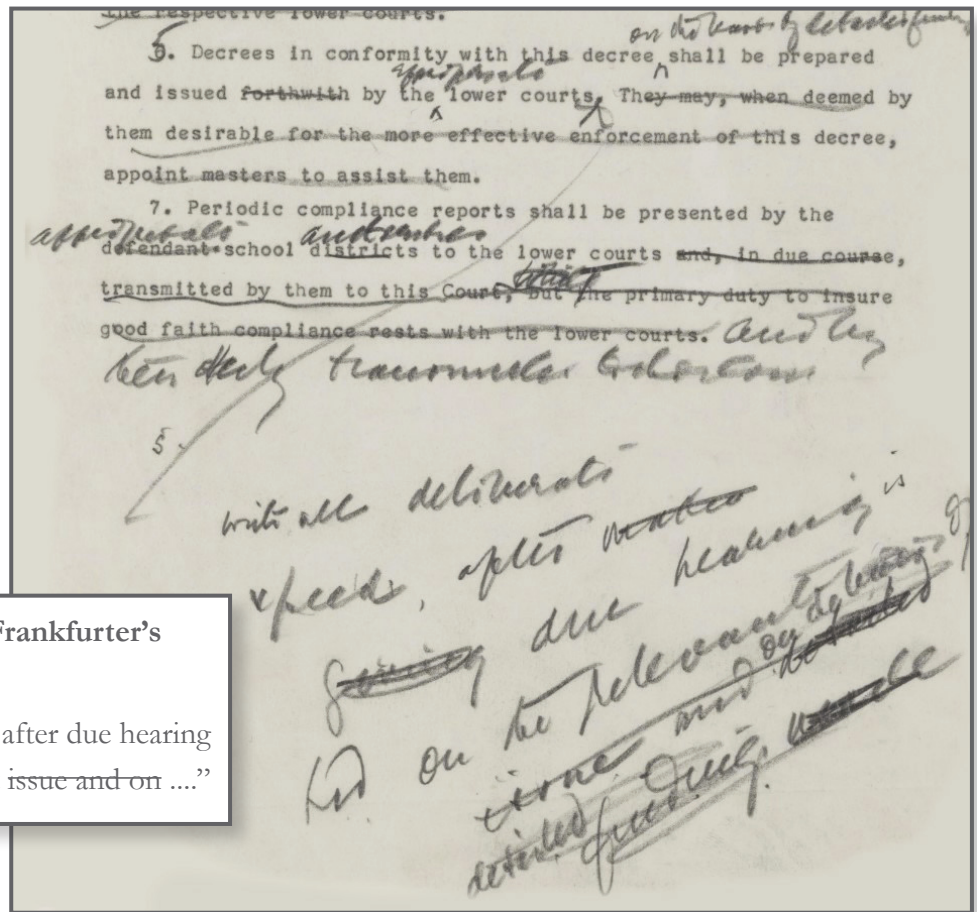 the respective lower courts.
on the basis of detailed findings
5. Decrees in conformity with this decree shall be prepared
appropriate
and issued forthwith by the lower courts. They may, when deemed by
them desirable for the more effective enforcement of this decree,
appoint masters to assist them.
7. Periodic compliance reports shall be presented by the
appropriate
defendant school districts to the lower courts and, in due course,
transmitted by them to this Court, but the primary duty to insure
good faith compliance rests with the lower courts. and by
transmitted
with all deliberate
speed, after
giving due hearing is
had on the relevant
issue and on
detailed findings
Frankfurter's
after due hearing
issue and on ....”